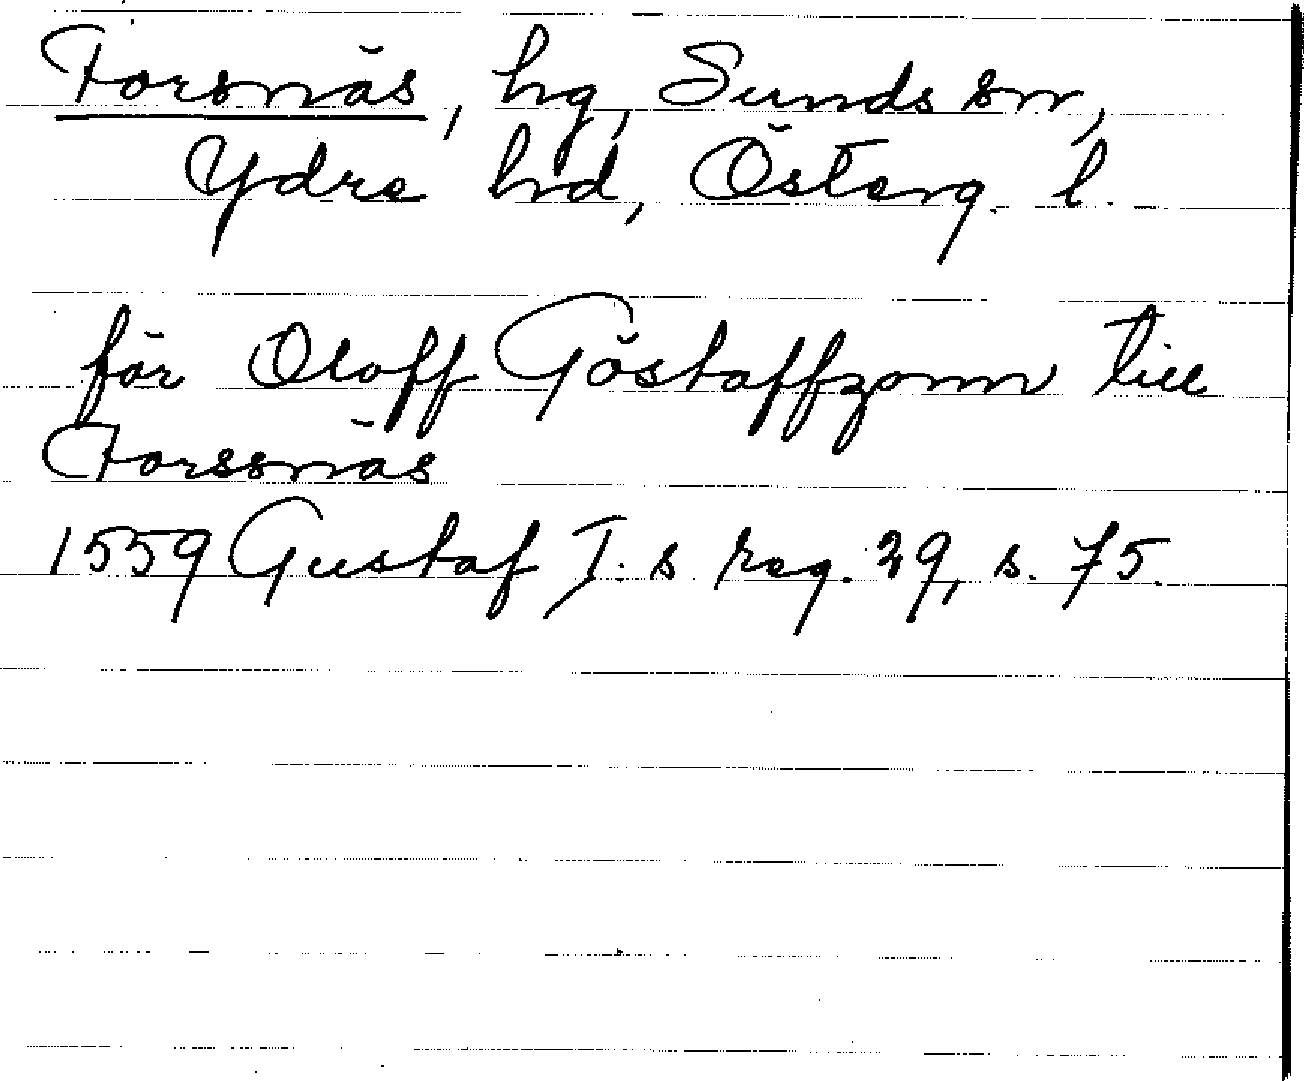 Forsnäs, hg, Sunds sn,
Ydre hd, Österg. l.
för Oloff Göstaffzonn till
Forssnäs
1559 Gustaf I:s reg. 29, s. 75.